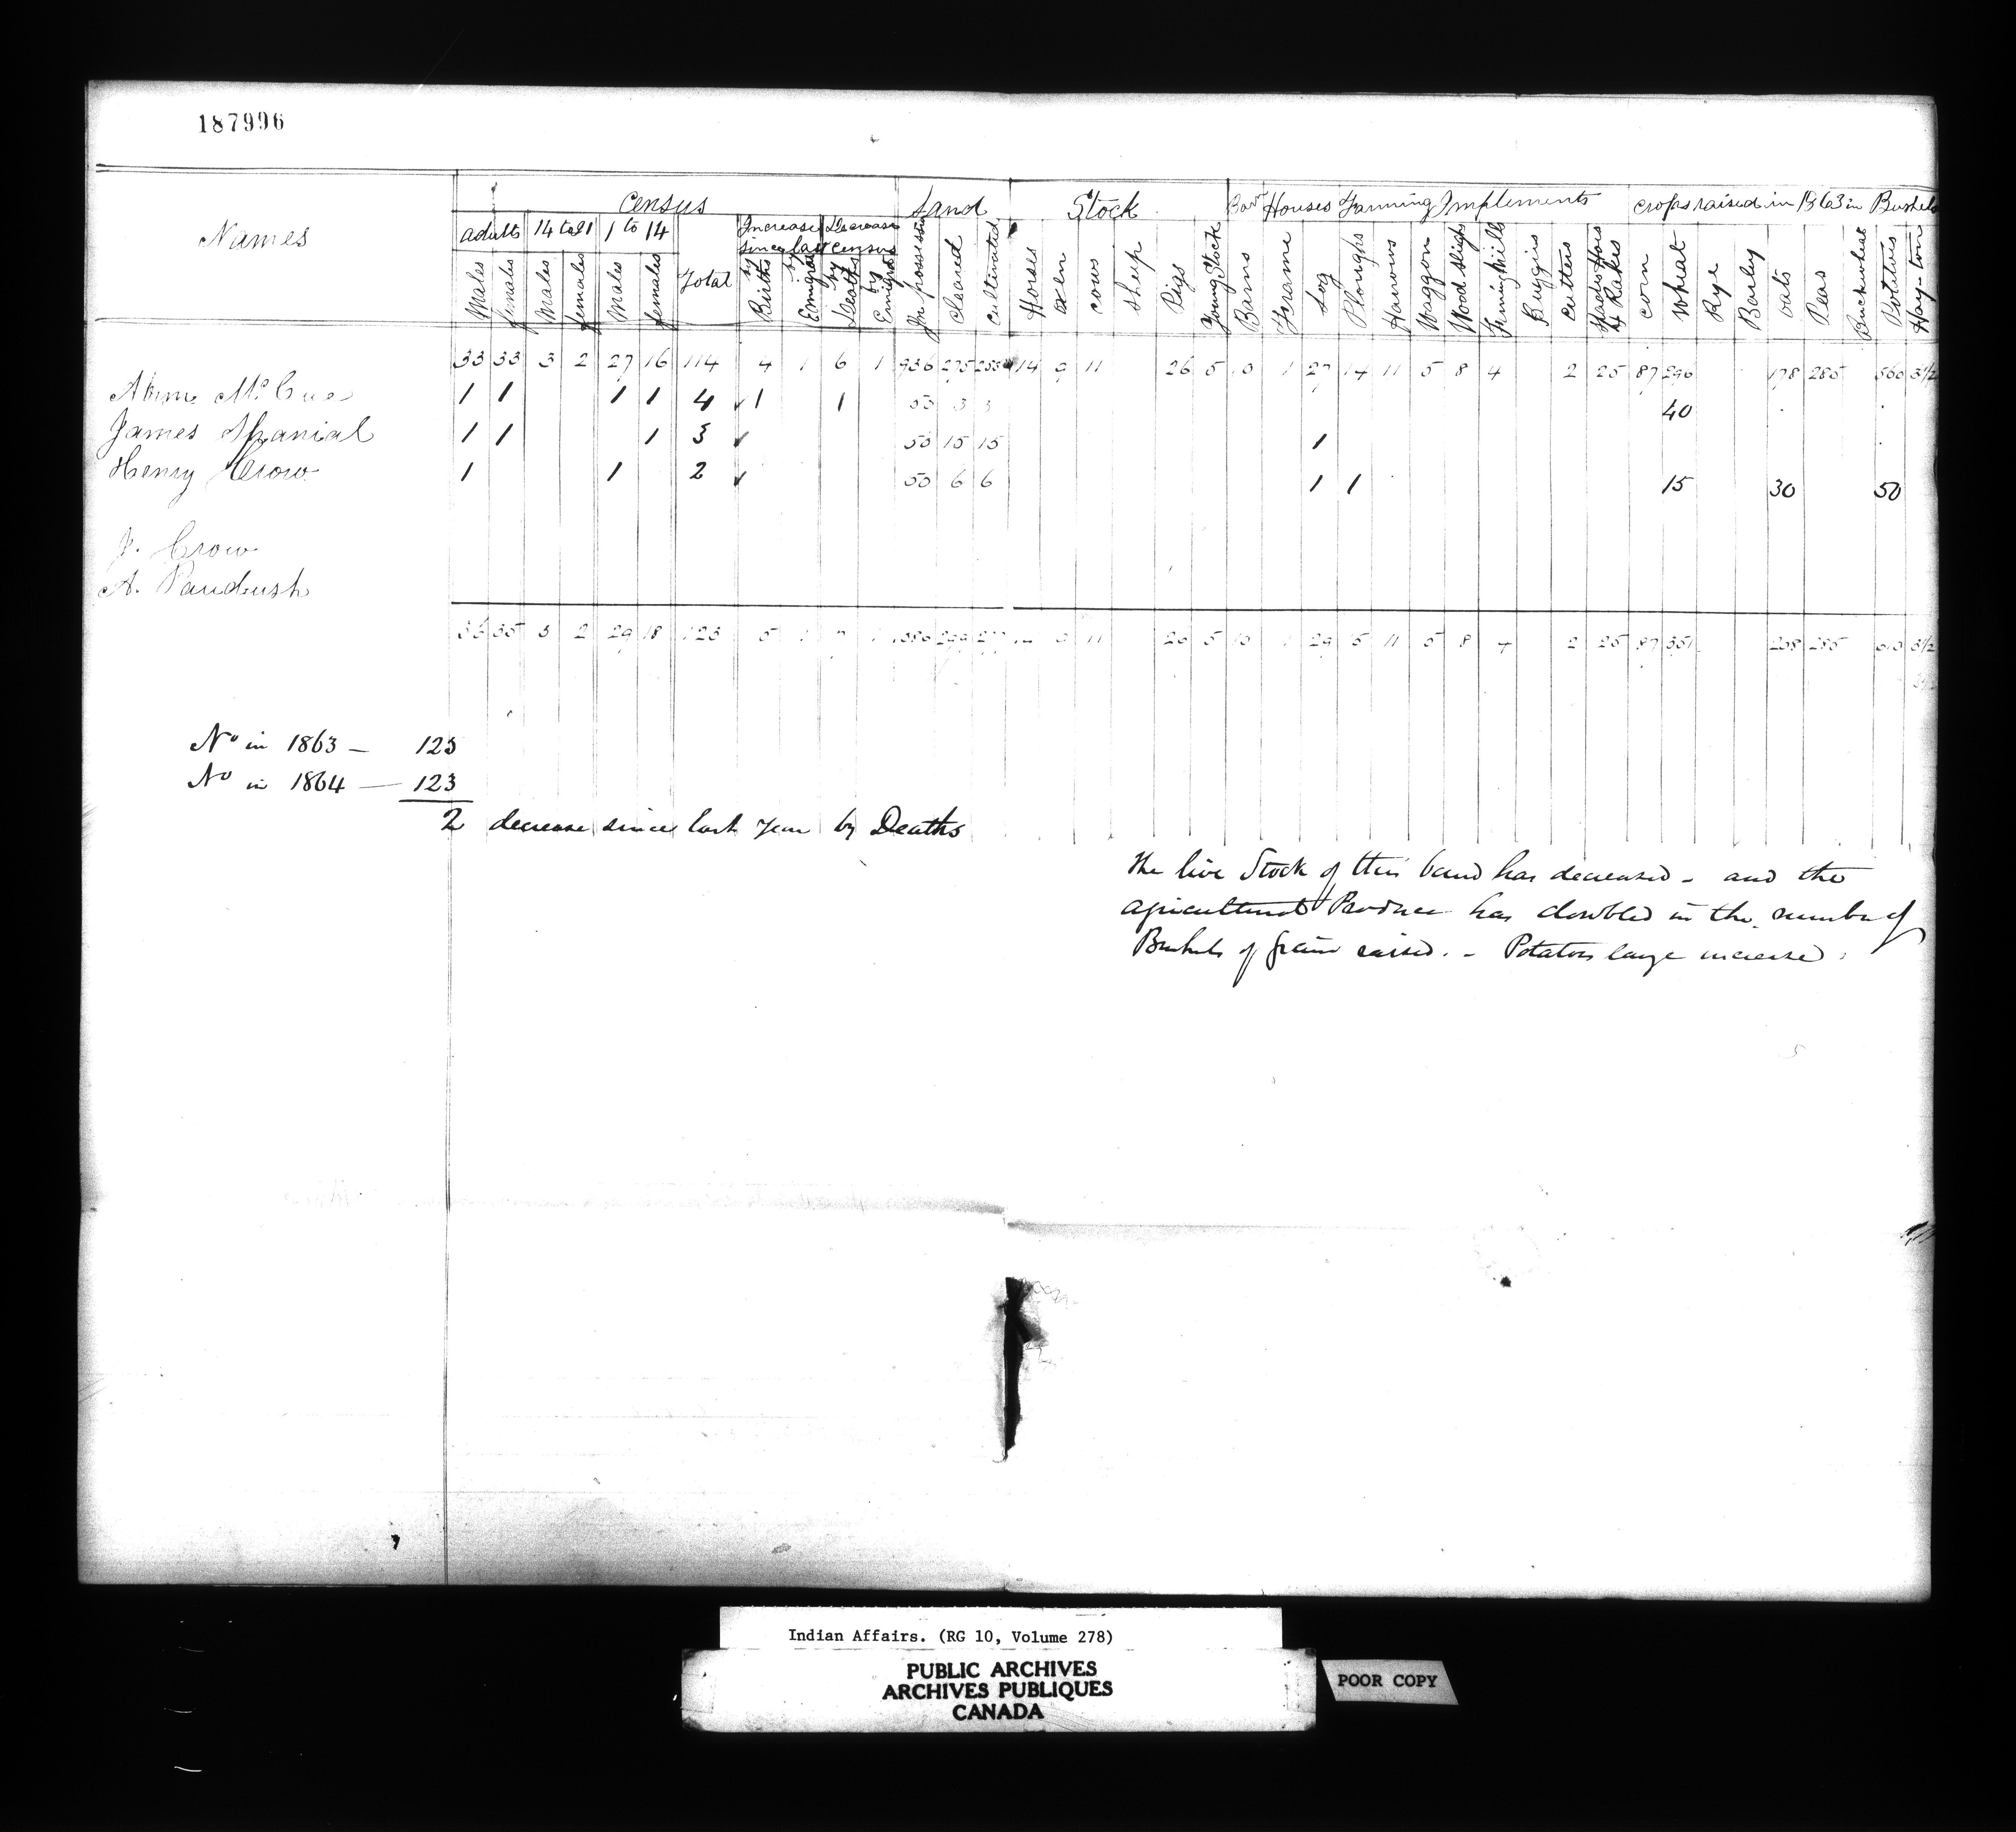 187996
Names
Census Land Stock Houses Farming Implements crops raised in 1863 in Bushels
adults 14 to 21 1 to 14 Total Increase since last census Decrease
Males females Males females Males females by Births by by Deaths by In possession cleared cultivated Horses oxen cows sheep Pigs Young Stock Barns Frame Log Ploughs Harrows Waggon Wood Sleighs Fanning Mills Buggies Cutters & Rakes corn Wheat Rye Barley oats Peas Buckwheat Potatoes Hay-ton
33 33 3 2 27 16 114 4 1 6 1 936 275 14 9 11 26 5 10 1 27 14 11 5 8 4 2 25 87 290 178 285 560 3½
McCue 1 1 1 1 4 ✓ 1 1 50 3 3 40
James 1 1 1 3 ✓ 50 15 15 1
Henry Crow 1 1 2 ✓ 50 6 6 1 1 15 30 50
J. Crow
A. Paudush
35 3 2 29 18 123 5 1 1 11 26 5 10 1 29 11 5 8 4 2 25 87 208 285 3½
No in 1863 — 125
No in 1864 — 123
2 decrease since last year by Deaths
The live Stock of this band has decreased - and the
agricultural Produce has doubled in the number of
Bushels of grain raised. - Potatoes large increase.
Indian Affairs. (RG 10, Volume 278)
PUBLIC ARCHIVES
ARCHIVES PUBLIQUES
CANADA
POOR COPY